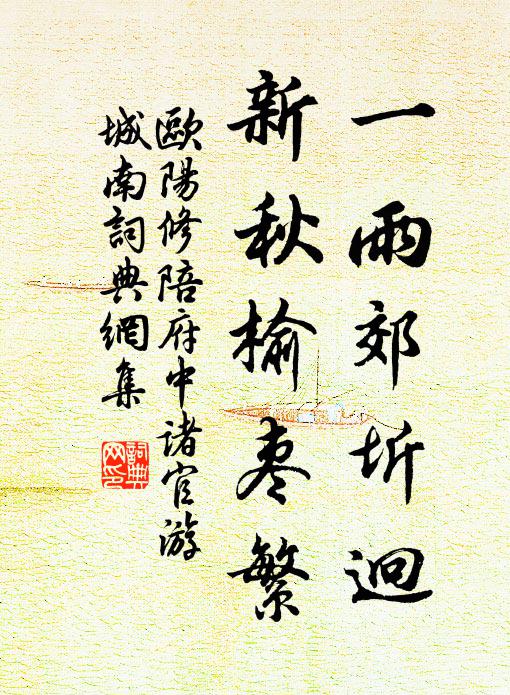 一雨郊圻迥
新秋榆枣繁
歐陽修陪府中诸官游
城南詞典網集
詞典
网印